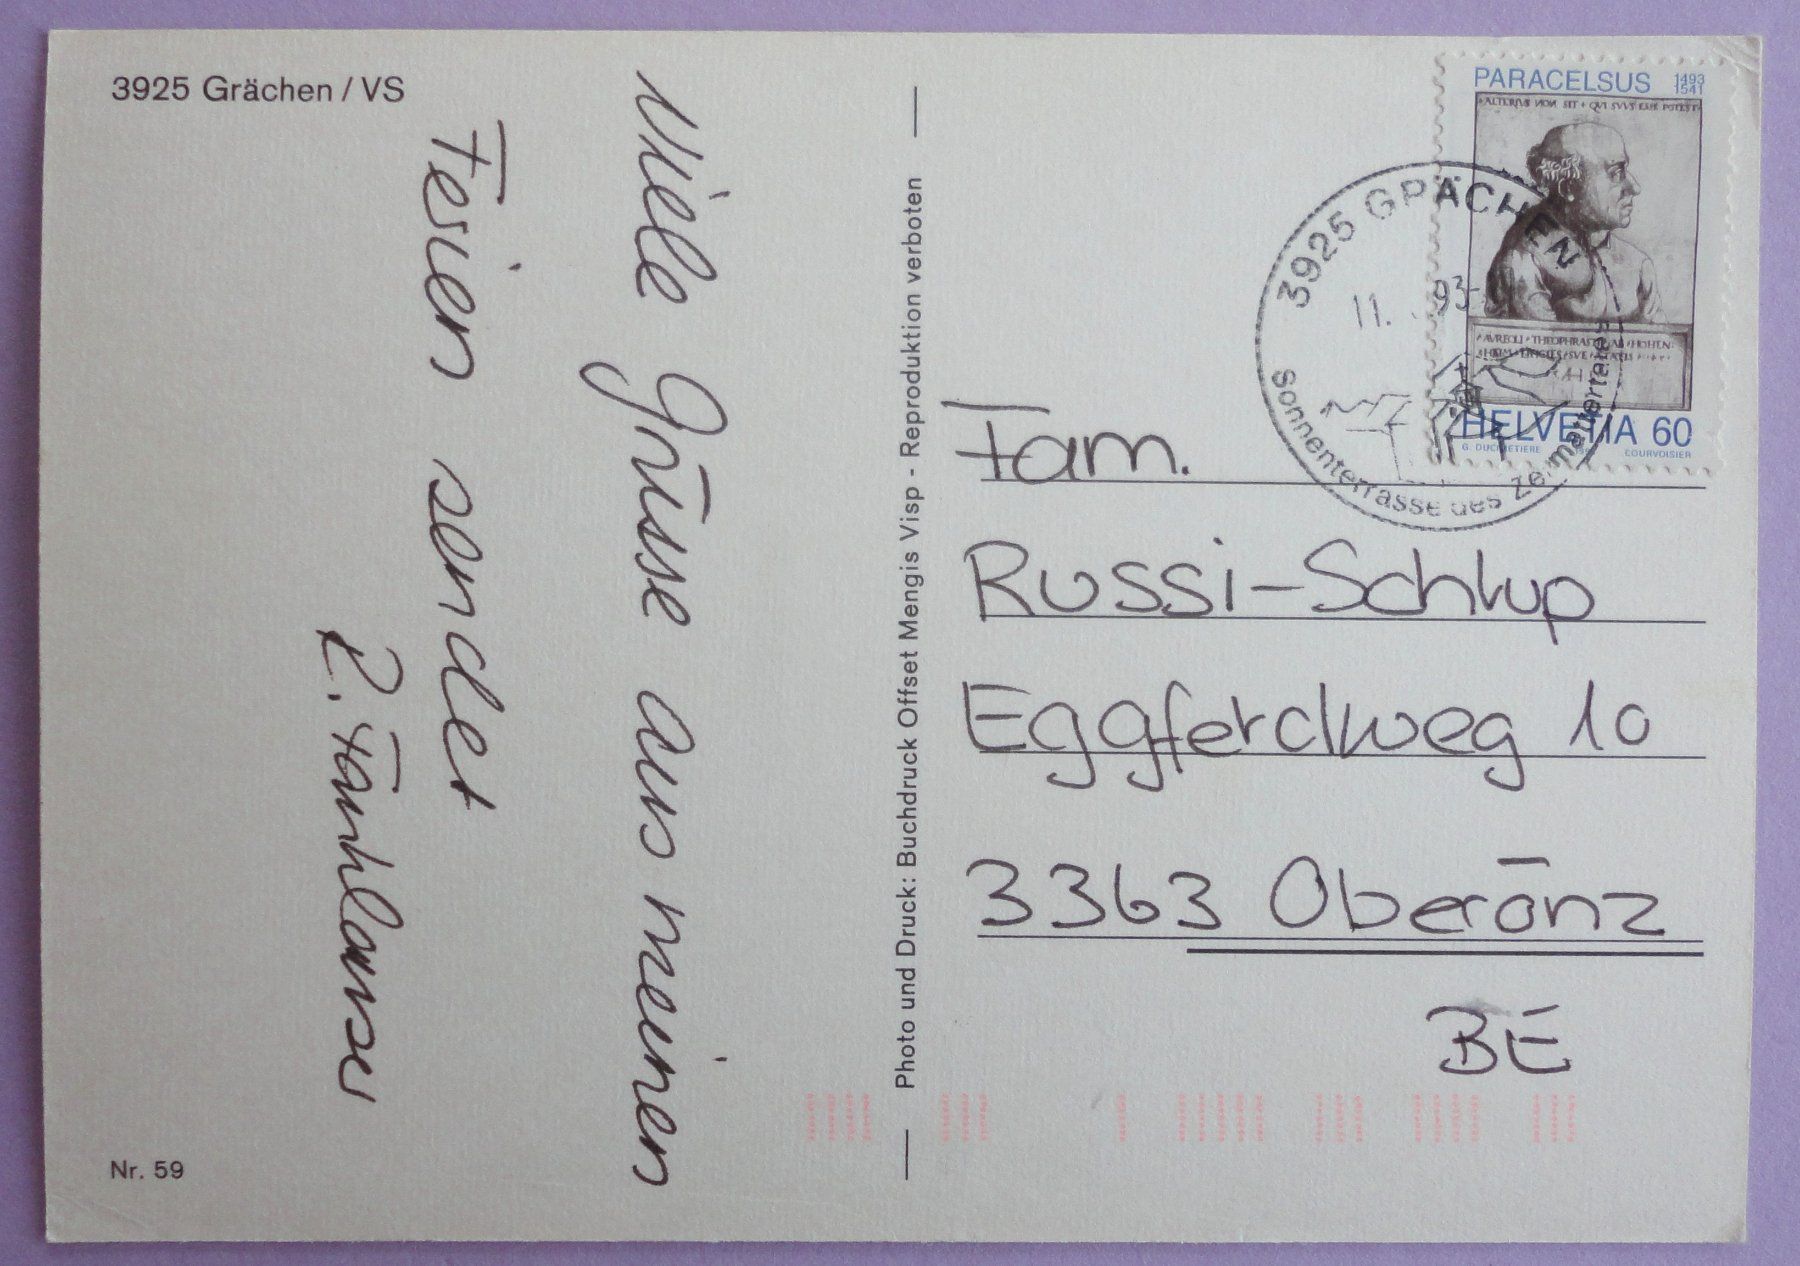 3925 Grächen / VS
Viele Grüsse aus meinen
Ferien sendet
Nr. 59
Photo und Druck: Buchdruck Offset Mengis Visp - Reproduktion verboten
PARACELSUS 1493 1541
ALTERIUS NON SIT QUI SUUS ESSE POTEST
HELVETIA 60
G. DUCIMETIERE COURVOISIER
3925 GRÄCHEN
11. 93-
Sonnenterrasse des Zermattertales
Fam.
Russi-Schlup
Eggferdweg 10
3363 Oberönz
BE